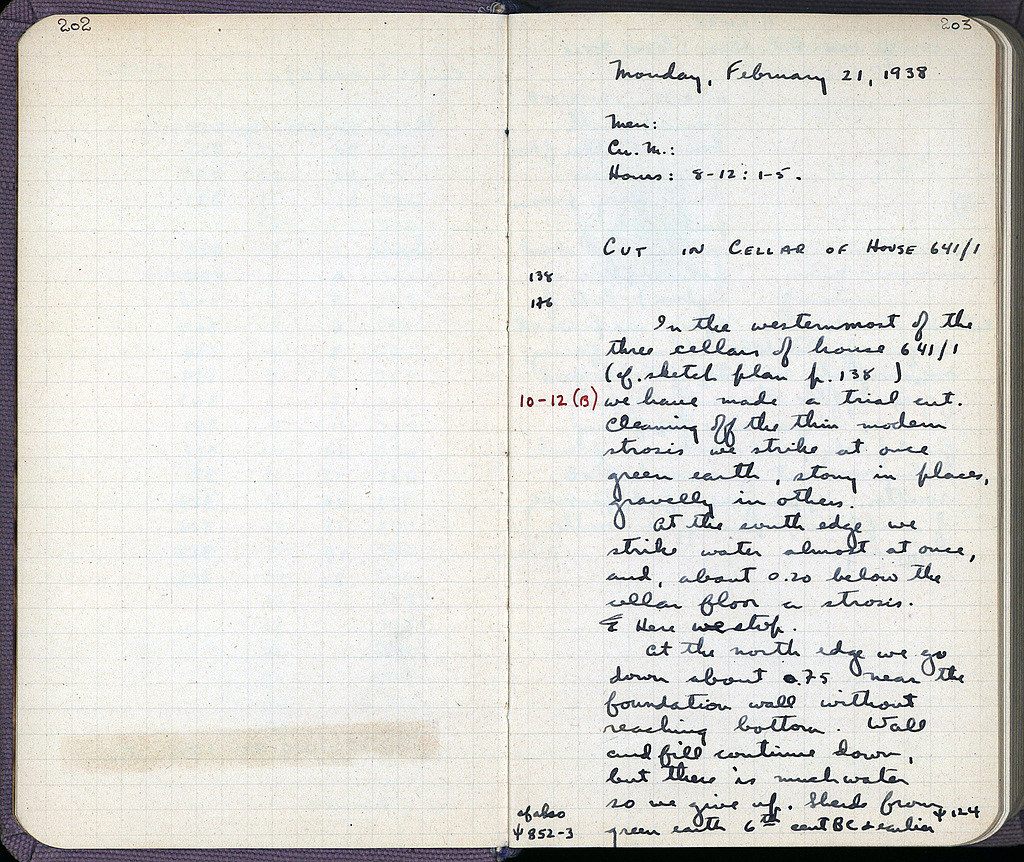 202
203
Monday, February 21, 1938
Men:
Cu. M.:
Hours: 8-12: 1-5.
CUT IN CELLAR OF HOUSE 641/1
138
176
In the westernmost of the
three cellars of house 641/1
(cf. sketch plan p. 138 )
10-12 (B) we have made a trial cut.
Cleaning off the thin modern
strosis we strike at once
green earth, stony in places,
gravelly in others.
At the south edge we
strike water almost at once,
and, about 0.20 below the
cellar floor a strosis.
Here we stop.
At the north edge we go
down about 0.75 near the
foundation wall without
reaching bottom. Wall
and fill continue down,
but there is much water
so we give up. Sherds from Ψ 124
cf also
Ψ 852-3 green earth 6th cent BC & earlier